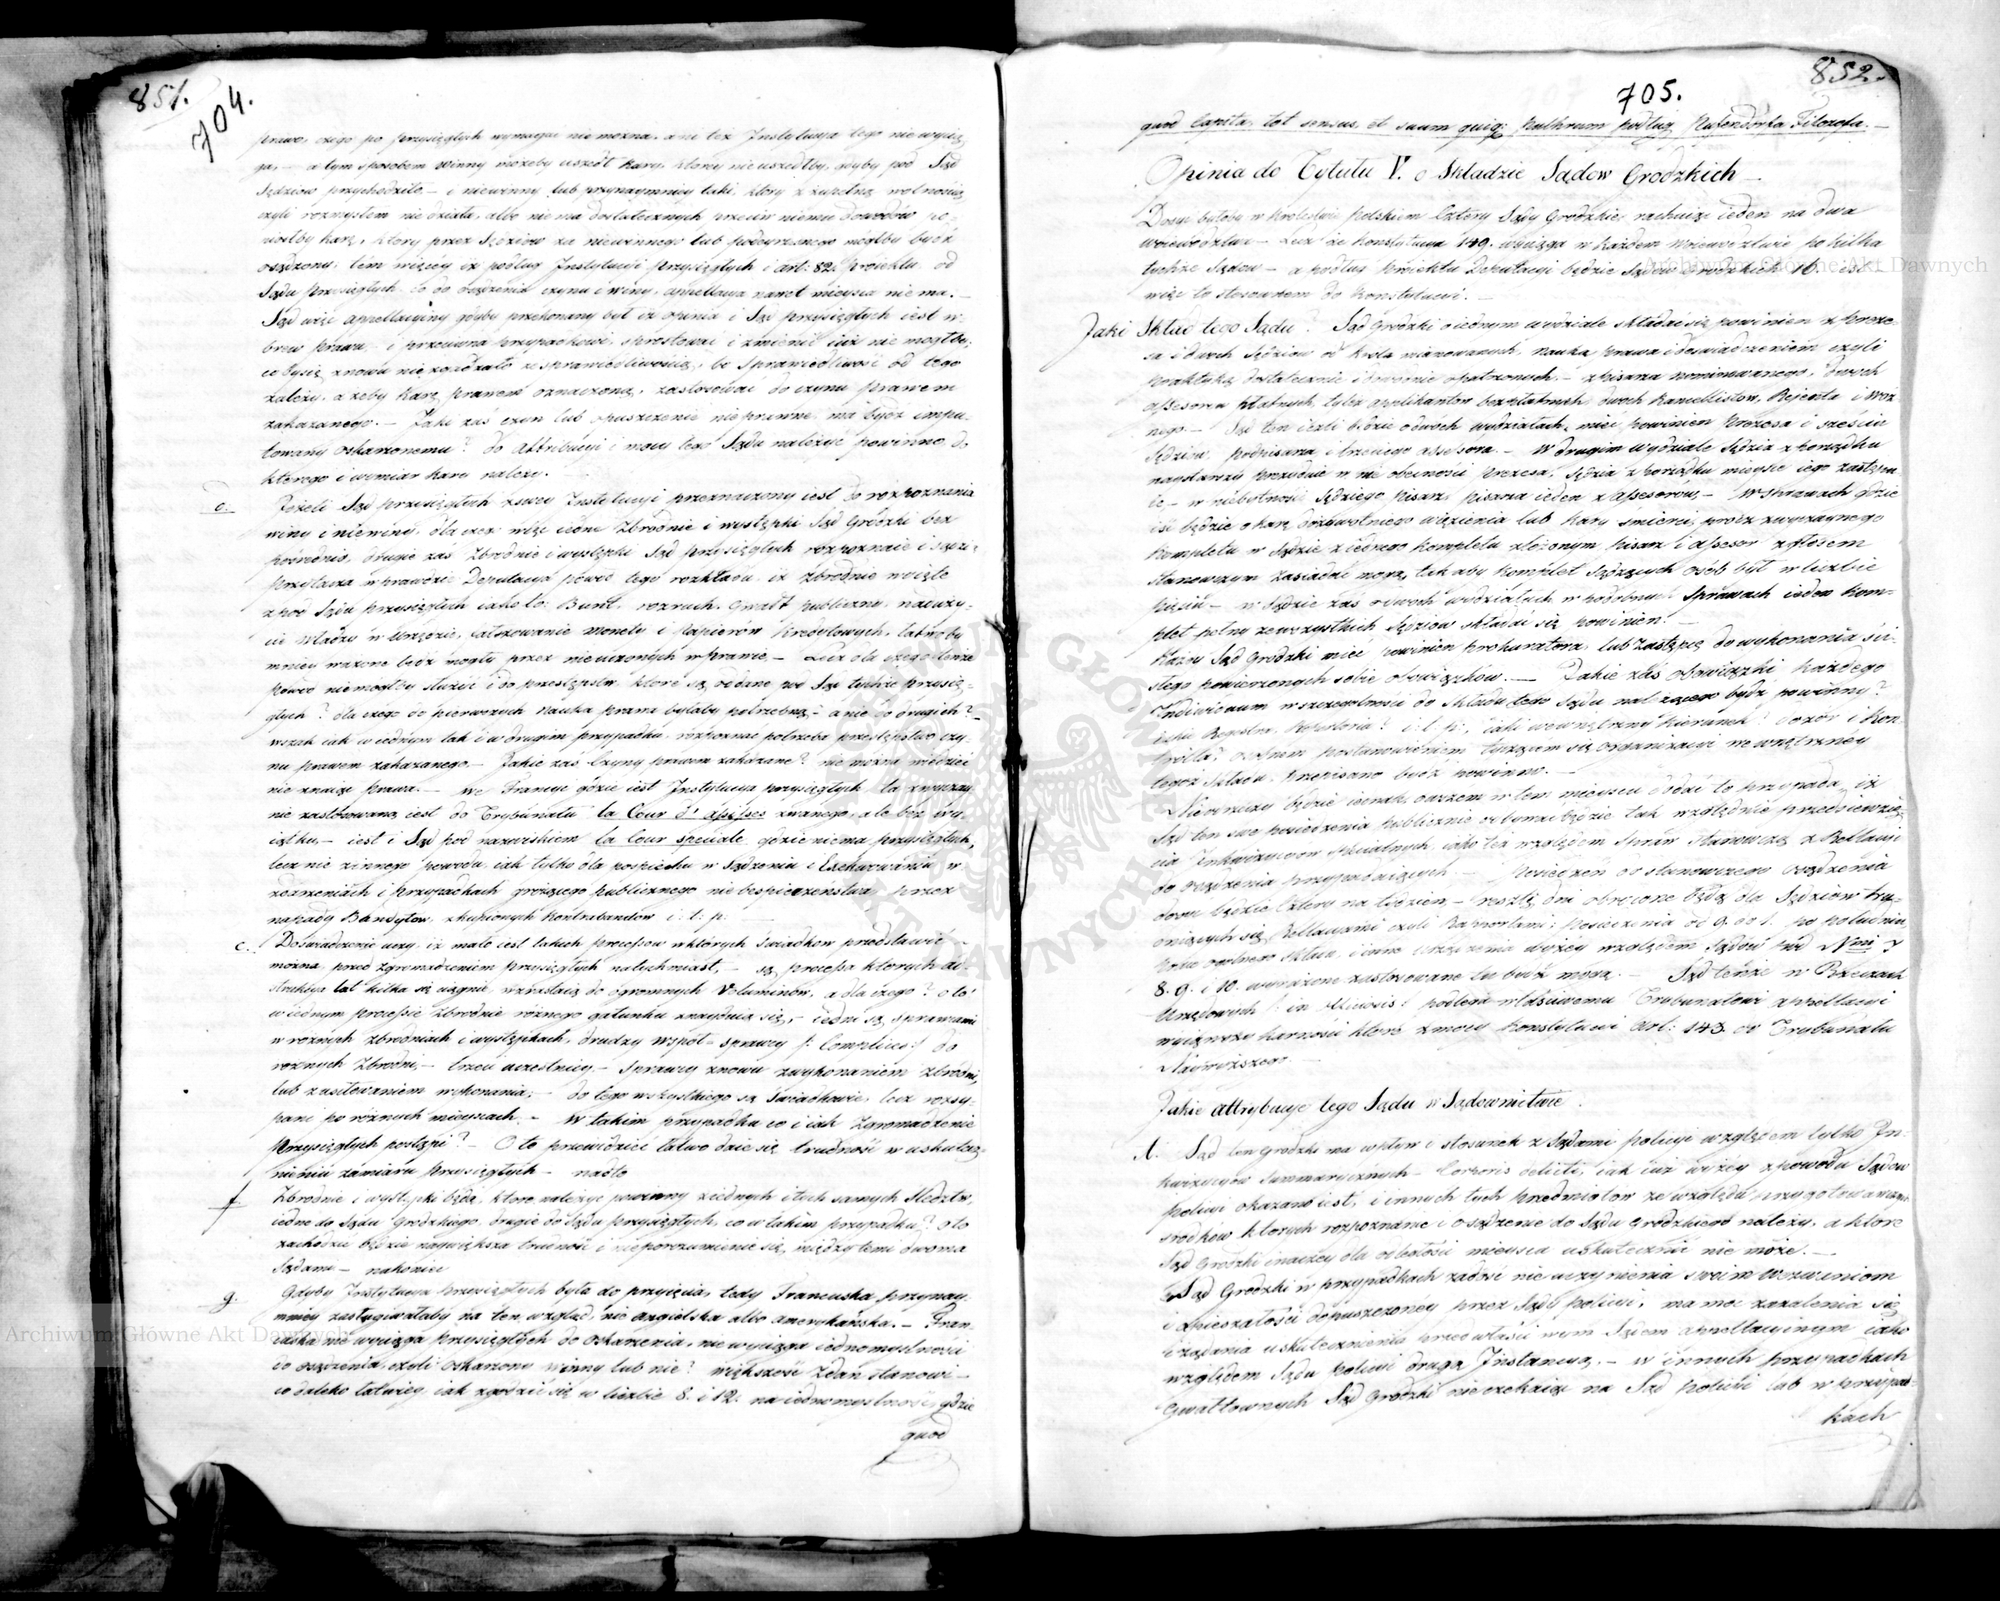 851.
704.
prawo, czego po przysięgłych wymagać nie można, ani też Instytucya tego nie wycią-
ga, — a tym sposobem winny możeby uszedł kary, któryby nie uszedłby, gdyby pod Sąd
Sędziów przychodziło — i niewinny lub przynaymniey taki, który z zupełną wolnością
czyli rozmysłem nie działa, albo nie ma dostatecznych przeciw niemu dowodów po-
niosłby karę, który przez Sędziów za niewinnego lub podeyrzanego mógłby być
osądzony; tém więcéy iż podług Instytucyi przysięgłych i art: 82. Proiektu od
Sądu przysięgłych co do osądzenia czynu i winy, appellacya nawet mieysca nie ma. —
Sąd więc appellacyiny gdyby przekonany był iż opinia i Sąd przysięgłych iest w-
brew prawu, — i przeciwna przypadkowi, sprostować i zmienić iuż nie mogłby,
coby się znowu nie zgadzało ze sprawiedliwością, bo Sprawiedliwość od tego
zależy, ażeby karę prawem oznaczoną, zastosować do czynu prawem
zakazanego. — Jaki zaś czyn lub opuszczenie nieprawne ma być impu-
towany oskarżonemu? do Attribucyi i mocy tego Sądu należyć powinno do
którego i wymiar kary należy.
Jeżeli Sąd przysięgłych z swey Instytucyi przeznaczony iest do rozpoznania
winy i niewinny, dla czego więc iedne Zbrodnie i występki Sąd Grodzki bez
pośrednio, drugie zaś Zbrodnie i występki Sąd przysięgłych rozpoznaie i sądzi —
przytacza wprawdzie Deputacya powód tego rozkładu, iż Zbrodnie wzięte
z pod Sądu przysięgłych iako to: Bunt, rozruch, Gwałt publiczny, naduży-
cie Władzy w Urzędzie, fałszowanie Monety i Papierów Kredytowych, łatwoby
mniey ważone być mogły przez nieuczonych w prawie, — Lecz dla czego tenże
powód niemógłby służyć i do przestępstw, które są oddane pod Sąd tychże przysię-
głych? dla czego do pierwszych nauka prawa byłaby potrzebną, — a nie do drugich? —
wszak iak w iednym tak i w drugim przypadku, rozpoznać potrzeba przestępstwo czy-
nu prawem zakazanego. — Jakie zaś Czyny prawem zakazane? nie można wiedzieć
nie znaiąc prawa. — we Francyi gdzie iest Instytucya przysięgłych ta zwyczay-
nie zastosowana iest do Trybunału la Cour d'assises zwanego, ale bez wy-
iątku, — iest i Sąd pod nazwiskiem la Cour speciale gdzie niema przysięgłych,
lecz nie z innego powodu, iak tylko dla pospiechu w Sądzeniu i Exekwowaniu w
zdarzeniach i przypadkach grożącego publicznego niebespieczeństwa przez
napady Bandytów, zkupionych Kontrabandów i: t: p:
e. Doświadczenie uczy, iż mało iest takich processów w których Świadków przedstawić
można przed zgromadzeniem przysięgłych natychmiast, — są processa których in-
strukcya lat kilka się ciągnie wzrastaią do ogromnych Voluminów, a dla czego? oto
w iednym processie Zbrodnie róznego gatunku zarzynaią się, — iedni są Sprawcami
w róznych Zbrodniach i występkach, drudzy współ-sprawcy /: Complices :/ do
roznych Zbrodni, — trzeci uczestnicy, — Sprawcy znowu z wykonaniem Zbrodni,
lub z usiłowaniem wykonania; — do tego wszystkiego są Świadkowie, lecz rozsy-
pani po róznych mieyscach. — W takim przypadku co i iak Zgromadzenie
Przysięgłych postąpi? — Oto przewidzieć łatwo daie się trudność w uskutecz-
nieniu zamiaru przysięgłych — nadto
f Zbrodnie i występki będą, które należyć powinny z iednych i tych samych Śledztw,
iedne do Sądu Grodzkiego, drugie do Sądu przysięgłych, co w takim przypadku? oto
zachodzić będzie naywiększa trudność i nieporozumienie się, między temi dwoma
Sądami — nakoniec
g. Gdyby Instytucya przysięgłych była do przyięcia, tedy Francuska przynay-
mniey zasługiwałaby na ten wzgląd, nie angielska albo amerykańska. — Fran-
cuska nie wyciąga przysięgłych do oskarżenia, nie wyciąga iednomyslności
do osądzenia, czyli oskarżony winny lub nie? większość Zdań stanowi —
co daleko łatwiey, iak zgodzić się w liczbie 8. i 12. na iednomyslność, gdzie
quod
852.
705.
quod Capita, tot sensus, et suum quiq; pulchrum podług Puffendorfa Filozofa. —
Opinia do Tytułu V. o Składzie Sądów Grodzkich —
Dosyć byłoby w Królestwie polskiem Cztery Sądy Grodzkie, rachuiąc ieden na dwa
woiewództwa — Lecz że Konstytucya 149. wyciąga w każdem Woiewództwie po kilka
tychże Sądów — a podług Proiektu Deputacyi będzie Sądów Grodzkich 16. iest
więc to stosownem do Konstytucyi. —
Jaki Skład tego Sądu? Sąd Grodzki o iednym wydziale składać się powinien z Preze-
sa i dwóch Sędziów od Króla mianowanych, nauką prawa i doświadczeniem czyli
praktyką dostatecznie i dowodnie opatrzonych, — z pisarza nominowanego, dwóch
assesorów płatnych, tylż applikantów bezpłatnych, dwóch Kancellistów, Rejenta i Woź-
nego. — Sąd ten ieżli będzie o dwóch wydziałach, mieć powinien Prezesa i sześciu
Sędziów, podpisarza i trzeciego assesora. — W drugim wydziale Sędzia z porządku
naystarszy prezyduie w nie obecności Prezesa, Sędzia z porządku mieysce iego zastępu-
ie — w niebytności Sędziego Pisarz, pisarza ieden z assesorów, — W sprawach gdzie
iść będzie o karę dożywotniego więzienia lub kary śmierci, prócz zwyczaynego
Kompletu w Sądzie z iednego kompletu złożonym Pisarz i assesor z głosem
stanowczym zasiadać mogą, tak aby komplet Sądzących osób był w liczbie
pięciu — w Sądzie zaś o dwóch wydziałach w podobnych Sprawach ieden kom-
plet pełny ze wszystkich Sędziów składać się powinien. —
Każdy Sąd Grodzki mieć powinien prokuratora, lub Zastępcę do wykonania ści-
słego powierzonych sobie obowiązków. — Jakie zaś obowiązki każdego
Individuum w szczególności do składu tego Sądu należącego bydź powinny?
iakie Registra, Repertoria? i: t: p:, iaki wewnętrzny kierunek? dozór i kon-
trolla? osobnem postanowieniem tyczącem się organizacyi wewnętrzney
tegoż Składu przepisano bydź powinno. —
Nie od rzeczy będzie iednak zarazem w tem mieyscu dodać to przypada iż
Sąd ten swe posiedzenia publicznie odbywać będzie tak względnie przedsięwzię-
cia Inkwizycyów Specialnych, iako też względem Spraw Stanowczo z Rellacyi
do osądzenia przypadaiących — Posiedzeń do stanowczego osądzenia
dosyć będzie Cztery na tydzień, — resztę dni obrócone będą dla Sędziów tru-
dniących się Rellacyami czyli Rapportami; posiedzenia od 9. do 1. po południu,
8. 9. i 10. wyrażone zastosowane tu być mogą. — Sąd tenże w Rzeczach
Urzędowych /: in Officiosis :/ podlega właściwemu Trybunałowi appellacyi
wyiąwszy karności które z mocy Konstytucyi Art: 143 do Trybunału
Naywyższego.
Jakie attrybucye tego Sądu w Sądownictwie.
A. Sąd ten Grodzki ma wpływ i stosunek z Sądami policyi względem tylko In-
kwizycyów Summarycznych — Corporis delicti, iak iuż wyżey z powodu Sądów
policyi okazano iest, i innych tych przedmiotów ze względu przygotowawczych
srodków których rozpoznanie i osądzenie do Sądu Grodzkiego należy, a które
Sąd Grodzki inaczey dla odległości mieysca uskutecznić nie może. —
Sąd Grodzki w przypadkach zadość nie uczynienia swoim wezwaniom
i opieszałości dopuszczoney przez Sąd policyi, ma moc zażalenia się
i żądania uskutecznienia przed właściwym Sądem appellacyinym iako
względem Sądu policyi drugą Instancyą. — w innych przypadkach
Gwałtownych Sąd Grodzki nieczekaiąc na Sąd policyi lub w przypad-
kach